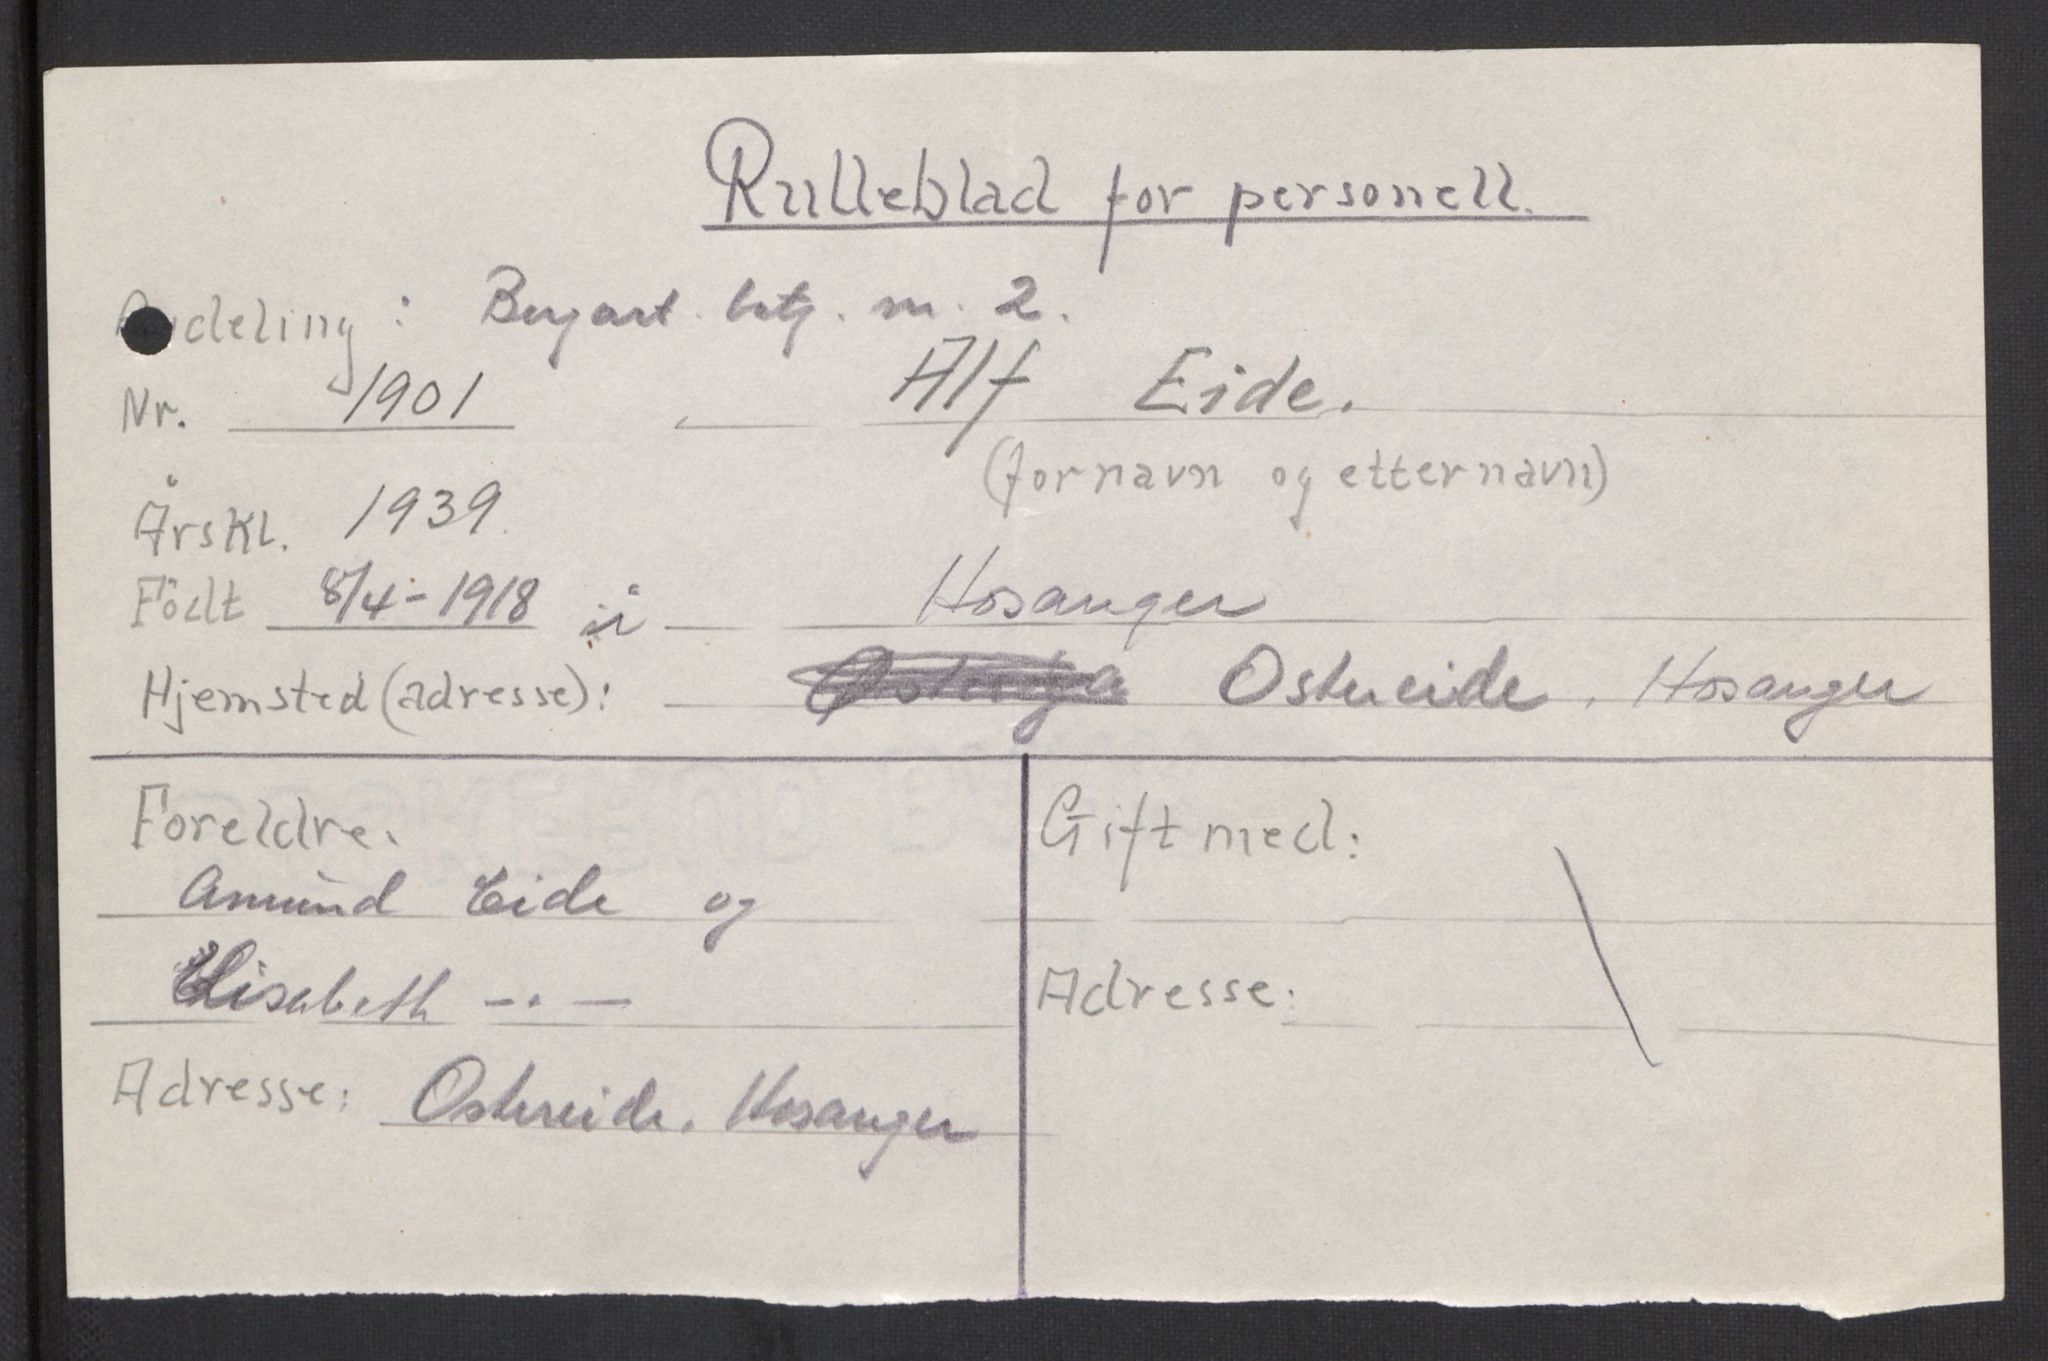 Rulleblad for personell.
Avdeling: Bergart. batj. nr. 2.
Nr. 1901 Alf Eide.
(fornavn og etternavn)
Årskl. 1939.
Födt 8/4-1918 i Hosanger
Hjemsted (adresse): Ostereide, Hosanger
Foreldre.
Amund Eide og
Elisabeth -"-
Adresse: Ostereide. Hosanger
Gift med:
Adresse: